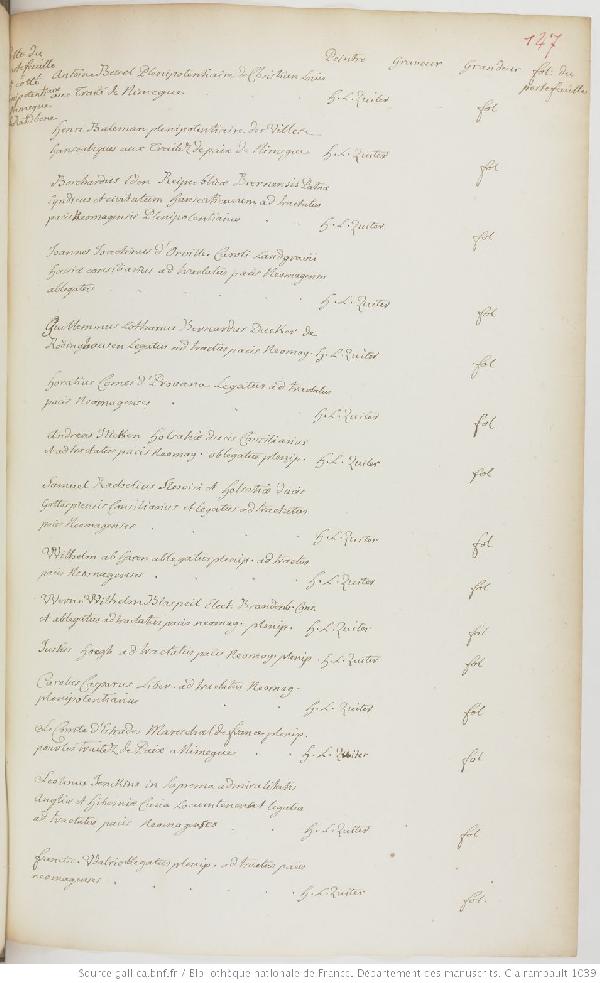 147
Peintre Graveur Grandeur fol. du
portefeuille
Antoine Plenipotentiaire de Christian Louis
aux Traité de Nimegue H. L. Quiter fol
Henri Buleman plenipotentiaire des Villes
hanseatiques aux Traitéz de paix de Nimegue H. L. Quiter fol
Borchardus Eden Reipublicæ Bremensis Patriæ
syndicus et civitatum hanseaticarum ad tractatus
pacis Neomagensis Plenipotentiarius H. L. Quiter fol
Joannes Joachimus d'Orville Caroli Landgravii
hassiæ consiliarius ad tractatus pacis Neomagensis
ablegatus H. L. Quiter fol
Guillelmus Lotharius Bernardus Ducker de
Legatus ad tractus pacis Neomag. H. L. Quiter fol
horatius Comes d'Provana Legatus ad tractatus
pacis Neomagenses H. L. Quiter fol
Andreas holsatiæ ducis Consiliarius
et ad tractatus pacis Neomag. oblegatus plenip. H. L. Quiter fol
Samuel Radselius Slesvici et holsatiæ ducis
Gottorpiensis Consiliarius et legatus ad tractatus
pacis Neomagenses H. L. Quiter fol
Wilhelm ab haren ablegatus plenip. ad tractus
pacis Neomagenses H. L. Quiter fol
Werne Wilhelm Blaspeil Elect. Brandenb. Cons.
et ablegatus ad tractatus pacis neomag. plenip. H. L. Quiter fol
Justus hoegh ad tractatus pacis Neomag. plenip. H. L. Quiter fol
Carolus Casparus Liber ad tractatus Neomag.
plenipotentiarius H. L. Quiter fol
Le Comte d'Estrades Mareschal de france plenip.
pour les traitéz de Paix a Nimegue H. L. Quiter fol
Leolinus Jenckins in suprema admiralitatis
Angliæ et hiberniæ Curia Locumtenens et legatus
ad tractatus pacis Neomagenses H. L. Quiter fol
plenip. ad tractus pacis
neomagenses H. L. Quiter fol.
Source gallica.bnf.fr / Bibliothèque nationale de France. Département des manuscrits. Clairambault 1039